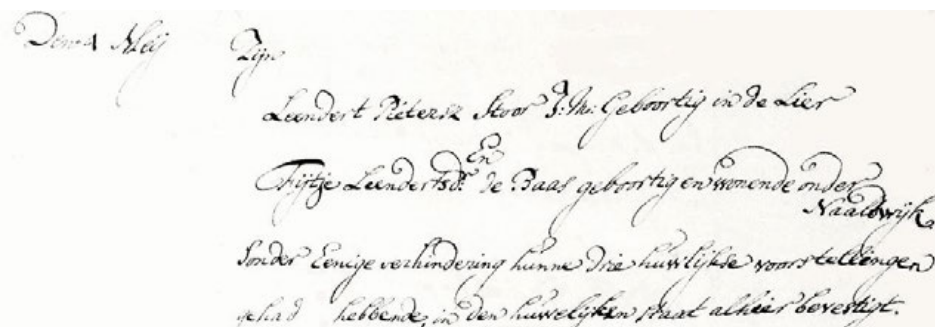 Den 4 Meij Zijn
Leendert Pietersz Stoor J: M: Geboortig in de Lier
En
Fijtje Leendertsdr. de Baas geboortig en wonende onder
Naaldwijk
Sonder Eenige verhindering hunne drie huwlijkse voorstellingen
gehad hebbende, in den huwelijken staat alhier bevestigt.